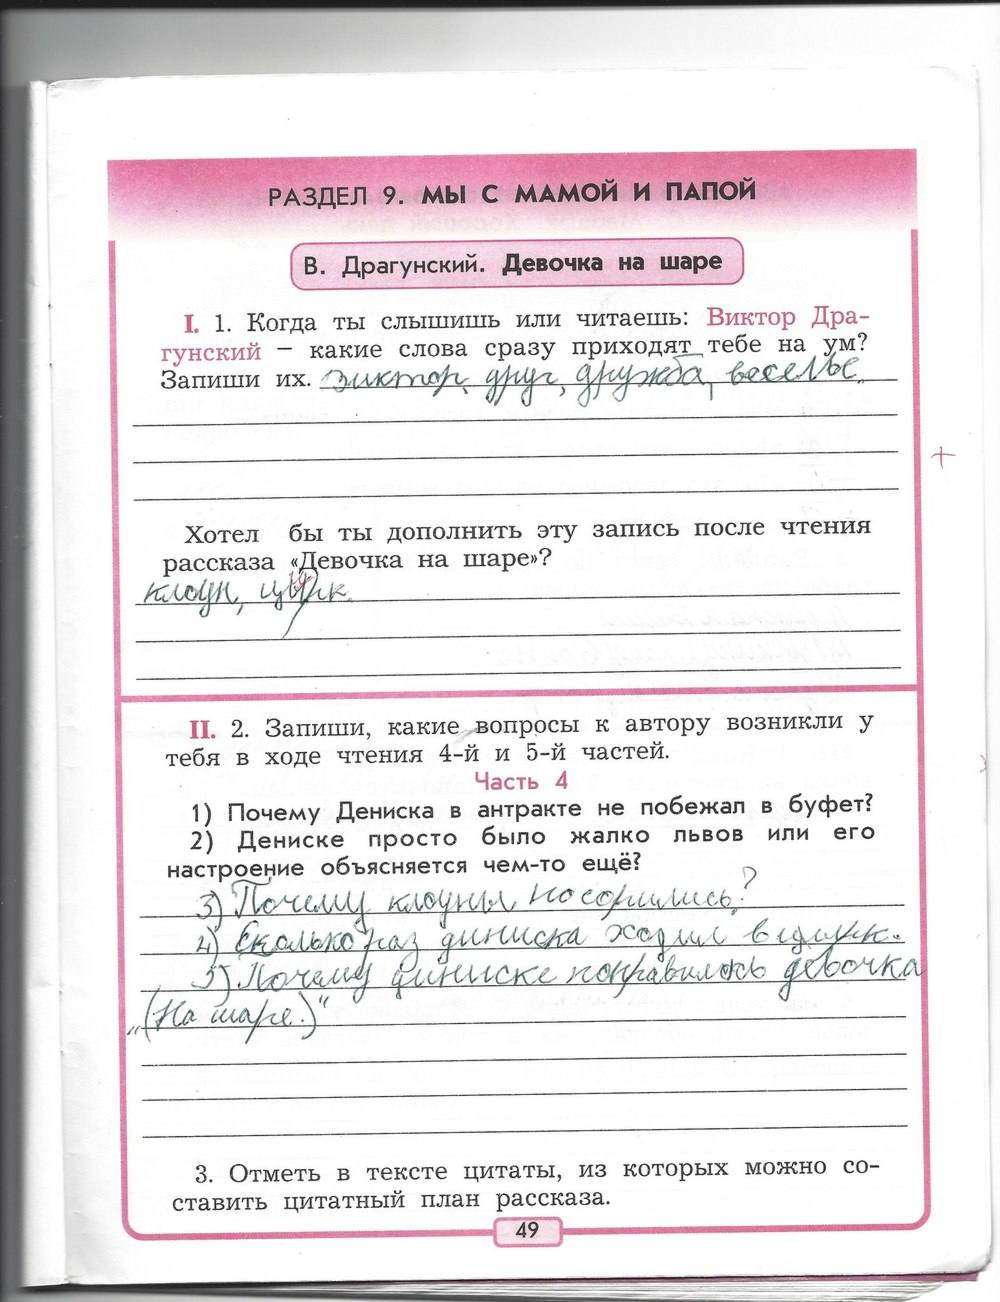 РАЗДЕЛ 9. МЫ С МАМОЙ И ПАПОЙ
В. Драгунский. Девочка на шаре
I. 1. Когда ты слышишь или читаешь: Виктор Дра-
гунский – какие слова сразу приходят тебе на ум?
Запиши их. виктор, друг, дружба, веселье.
+
Хотел бы ты дополнить эту запись после чтения
рассказа «Девочка на шаре»?
клоун, цырк.
II. 2. Запиши, какие вопросы к автору возникли у
тебя в ходе чтения 4-й и 5-й частей.
Часть 4
1) Почему Дениска в антракте не побежал в буфет?
2) Дениске просто было жалко львов или его
настроение объясняется чем-то ещё?
3) Почему клоуны посорились?
4) Сколько раз диниска ходил в цырк.
5) Почему диниске понравилось девочка
„(На шаре.)"
3. Отметь в тексте цитаты, из которых можно со-
ставить цитатный план рассказа.
49